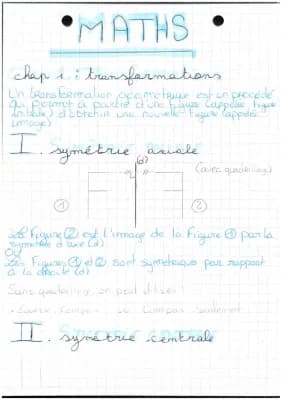 MATHS
chap 1 : transformations
Un transformation géométrique est un procédé
qui permet à partir d'une figure (appelée figure
initiale) d'obtenir une nouvelle figure (appelée
image)
I. symétrie axiale
(d)
(avec quadrillage)
① ②
La Figure ② est l'image de la Figure ① par la
symétrie d'axe (d)
Ou
Les Figures ① et ② sont symétriques par rapport
à la droite (d)
Sans quadrillage, on peut utiliser :
compas seulement
II. symétrie centrale